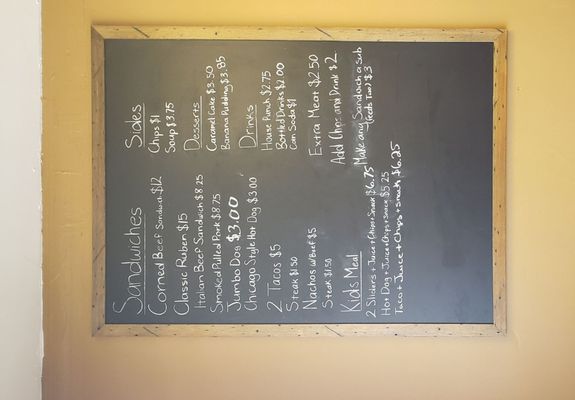 Sandwiches
Corned Beef Sandwich $12
Classic Ruben $15
Italian Beef Sandwich $8.25
Smoked Pulled Pork $8.75
Jumbo Dog $3.00
Chicago Style Hot Dog $3.00
2 Tacos $5
Steak $1.50
Nachos w/Beef $5
Steak $1.50
Kids Meal
2 Sliders + Juice + Chips + Snack $6.75
Hot Dog + Juice + Chips + Snack $5.25
Taco + Juice + Chips + snack $6.25
Sides
Chips $1
Soup $3.75
Desserts
Caramel Cake $3.50
Banana Pudding $3.85
Drinks
House Punch $2.75
Bottled Drinks $2.00
Can Soda $1
Extra Meat $2.50
Add Chips and Drink $2
Make any Sandwich a Sub
(feeds Two) $3